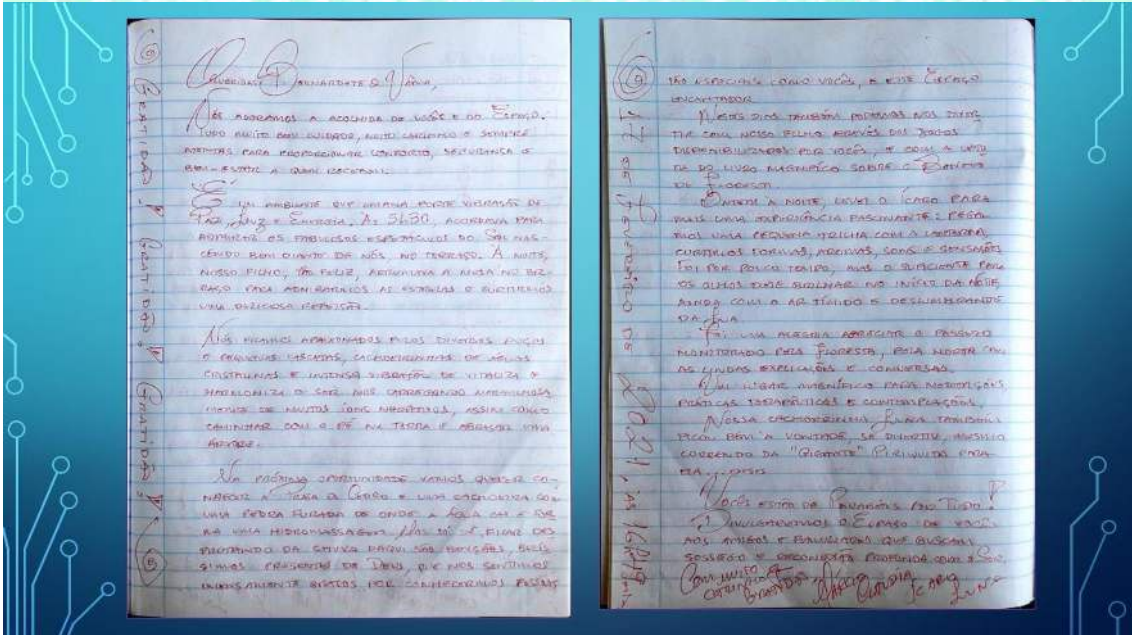 Queridas Bernardete e Vânia,
Nós adoramos a acolhida de vocês e do Espaço.
Tudo muito bem cuidado, muito carinho e sempre
atentas para proporcionar conforto, segurança e
bem-estar a quem recebem.
É um ambiente que emana forte vibração de
Paz, Luz e Energia. Às 5h30, acordava para
admirar os fabulosos espetáculos do Sol nas-
cendo bem diante de nós, no terraço. À noite,
nosso filho, tão feliz, a ter-
raço para admirarmos as estrelas e curtirmos
uma deliciosa refeição.
Nós ficamos apaixonados pelos diversos poços
e pequenas cascatas, cachoeirinhas de águas
cristalinas e intensa vibração de vitaliza e
harmoniza o ser. Nos carregando
de muitos íons negativos, assim como
caminhar com o pé na terra e abraçar uma
árvore.
Na próxima oportunidade vamos querer co-
nhecer a e uma cachoeira com
uma pedra furada de onde a água cai e for-
ma uma hidromassagem. Mas só de ficar des-
frutando da daqui são bençãos, belís-
simos presentes de Deus, que nos sentimos
imensamente gratos por conhecermos pessoas
Gratidão! Gratidão! Gratidão!
tão especiais como vocês, e esse Espaço
encantador.
Nestes dias também pudemos nos diver-
tir com nosso filho através dos jogos
disponibilizados por vocês, e com a leitu-
ra do livro magnífico sobre o
de
Ontem à noite, levei o Ícaro para
mais uma experiência fascinante: pega-
mos uma pequena trilha com a lanterna,
curtimos formas, aromas, sons e sensações
Foi por pouco tempo, mas o suficiente para
os olhos dele brilhar no início da noite
ainda com o ar tímido e deslumbrante
da Lua.
Foi uma alegria apreciar o passeio
monitorado pela Floresta, pela
as lindas explicações e conversas.
Que lugar magnífico para meditações,
práticas terapêuticas e contemplações.
Nossa cachorrinha Luna também
ficou bem à vontade, se divertiu, mesmo
correndo da "gigante" Periquita para
ela...
Vocês estão de Parabéns por Tudo!
Divulgaremos o Espaço de vocês
aos amigos e familiares que buscam
sossego e reconexão profunda com o Ser.
Com muito
carinho e
gratidão
Claudia
Ícaro
Luna
12 de de 2021, às